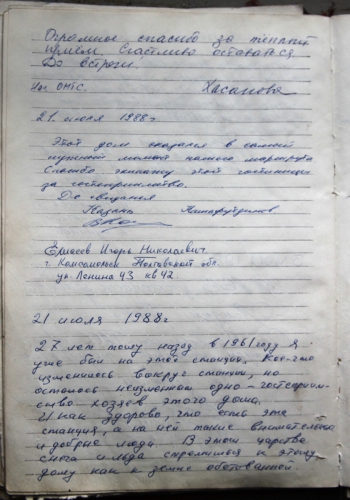 Огромное спасибо за теплый
прием. Счастливо оставаться
До встречи.
Нач. ОМТС. Хасанова
21 июля 1988г
Этот дом оказался в самой
нужной точкой нашего маршрута
Спасибо экипажу этой гостиницы
за гостеприимство.
До свидания
Казань
Елисеев Игорь Николаевич
г. Комсомольск Полтавской обл.
ул. Ленина 43 кв 42
21 июля 1988г
27 лет тому назад в 1961 году я
уже был на этой станции. Кое-что
изменилось вокруг станции, но
осталось неизменном одно - гостеприим-
ство хозяев этого дома.
И как здорово, что есть эта
станция, а на ней такие внимательные
и добрые люди. В этом царстве
снега и льда стремишься к этому
дому как к земле обетованной.